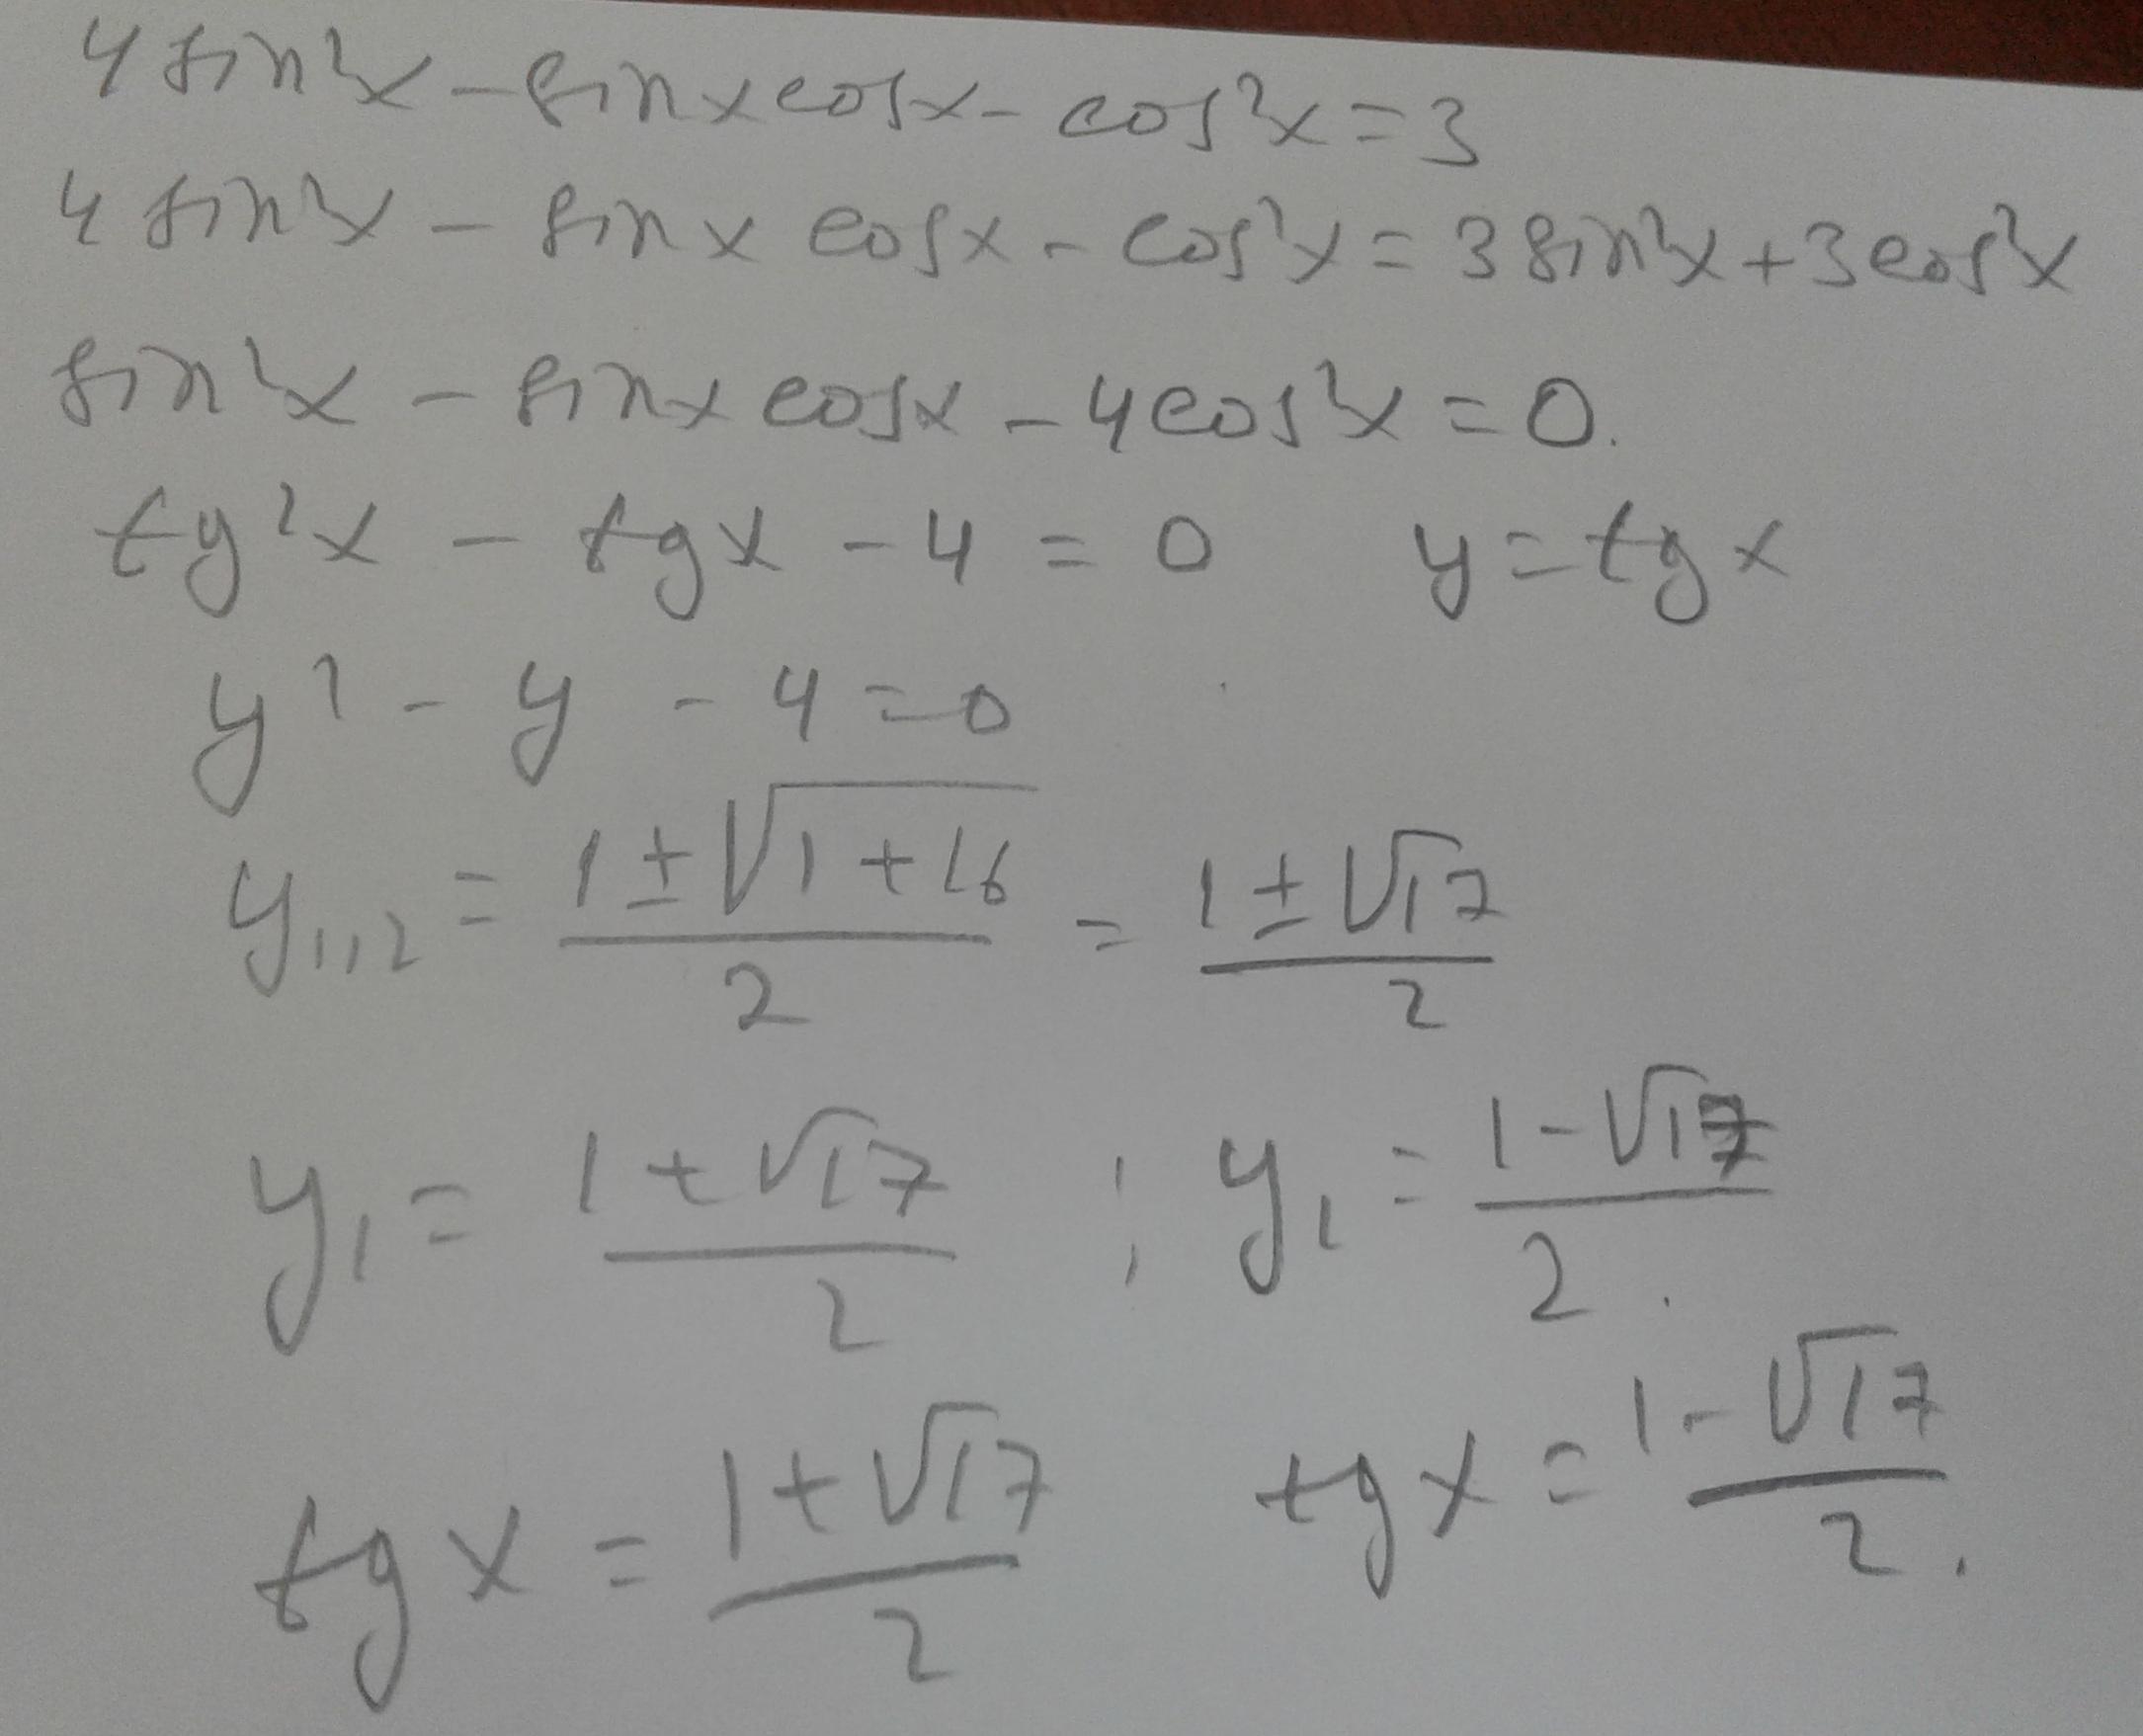 4 sin²x - sinx cosx - cos²x = 3
4 sin²x - sinx cosx - cos²x = 3 sin²x + 3 cos²x
sin²x - sinx cosx - 4 cos²x = 0.
tg²x - tgx - 4 = 0    y = tgx
y² - y - 4 = 0
y₁,₂ = (1 ± √(1+16))/2 = (1 ± √17)/2
y₁ = (1 + √17)/2 ; y₁ = (1 - √17)/2.
tgx = (1 + √17)/2    tgx = (1 - √17)/2.